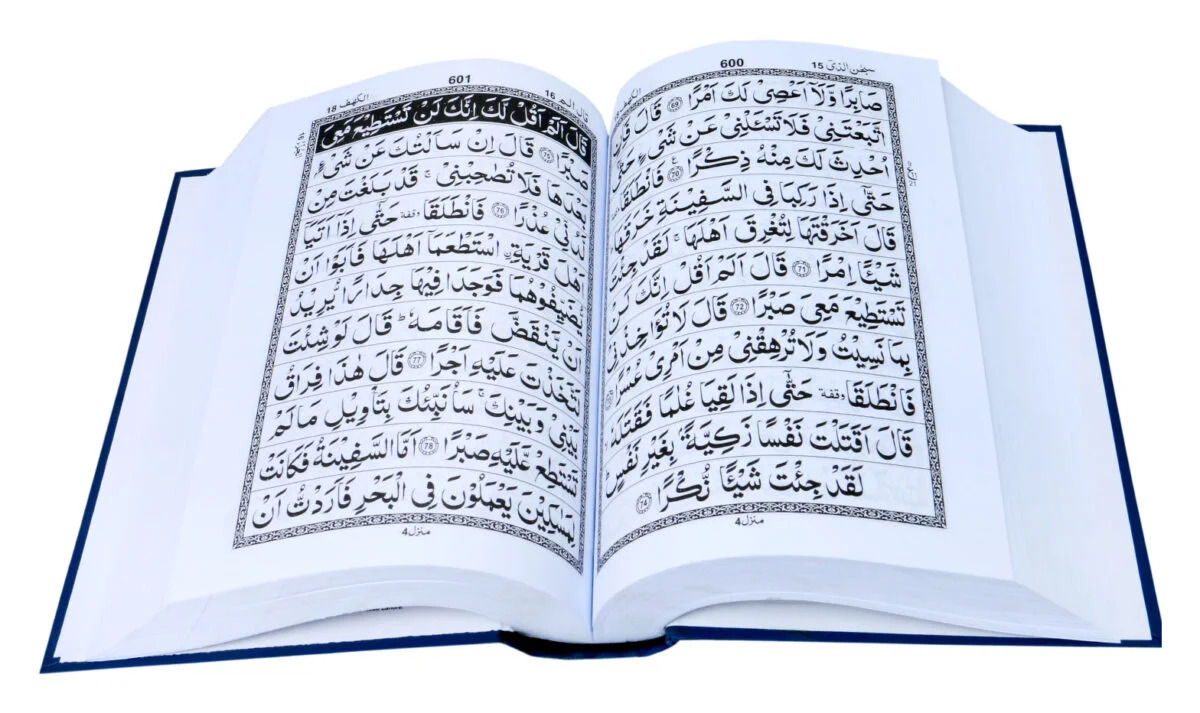 سبحن الذیٓ 15 600 الكهف
صَابِرًا وَّلَاۤ اَعْصِیْ لَكَ اَمْرًا 69 قَالَ
اتَّبَعْتَنِیْ فَلَا تَسْـَٔلْنِیْ عَنْ شَیْءٍ حَتّٰۤی
اُحْدِثَ لَكَ مِنْهُ ذِكْرًا 70 ع فَانْطَلَقَا وقفة
حَتّٰۤی اِذَا رَكِبَا فِی السَّفِیْنَةِ خَرَقَهَا
قَالَ اَخَرَقْتَهَا لِتُغْرِقَ اَهْلَهَا ۚ لَقَدْ جِئْتَ
شَیْـًٔا اِمْرًا 71 قَالَ اَلَمْ اَقُلْ اِنَّكَ لَنْ
تَسْتَطِیْعَ مَعِیَ صَبْرًا 72 قَالَ لَا تُؤَاخِذْنِیْ
بِمَا نَسِیْتُ وَلَا تُرْهِقْنِیْ مِنْ اَمْرِیْ عُسْرًا
فَانْطَلَقَا وقفة حَتّٰۤی اِذَا لَقِیَا غُلٰمًا فَقَتَلَهٗ
قَالَ اَقَتَلْتَ نَفْسًا زَكِیَّةًۢ بِغَیْرِ نَفْسٍ
لَقَدْ جِئْتَ شَیْـًٔا نُّكْرًا 74
منزل 4
قال الم 16 601 الكهف 18
قَالَ اَلَمْ اَقُلْ لَّكَ اِنَّكَ لَنْ تَسْتَطِیْعَ مَعِیَ
صَبْرًا 75 قَالَ اِنْ سَاَلْتُكَ عَنْ شَیْءٍۭ
بَعْدَهَا فَلَا تُصٰحِبْنِیْ ۚ قَدْ بَلَغْتَ مِنْ
لَّدُنِّیْ عُذْرًا 76 فَانْطَلَقَا وقفة حَتّٰۤی اِذَاۤ اَتَیَاۤ
اَهْلَ قَرْیَةِ ِ۟اسْتَطْعَمَاۤ اَهْلَهَا فَاَبَوْا اَنْ
یُّضَیِّفُوْهُمَا فَوَجَدَا فِیْهَا جِدَارًا یُّرِیْدُ
اَنْ یَّنْقَضَّ فَاَقَامَهٗ ؕ قَالَ لَوْ شِئْتَ
لَتَّخَذْتَ عَلَیْهِ اَجْرًا 77 قَالَ هٰذَا فِرَاقُ
بَیْنِیْ وَبَیْنِكَ ۚ سَاُنَبِّئُكَ بِتَاْوِیْلِ مَا لَمْ
تَسْتَطِعْ عَّلَیْهِ صَبْرًا 78 اَمَّا السَّفِیْنَةُ فَكَانَتْ
لِمَسٰكِیْنَ یَعْمَلُوْنَ فِی الْبَحْرِ فَاَرَدْتُّ اَنْ
منزل 4